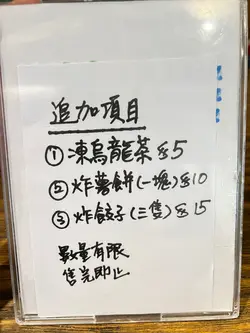 追加項目
① 凍烏龍茶 $5
② 炸薯餅(一塊) $10
③ 炸餃子(三隻) $15
數量有限
售完即止